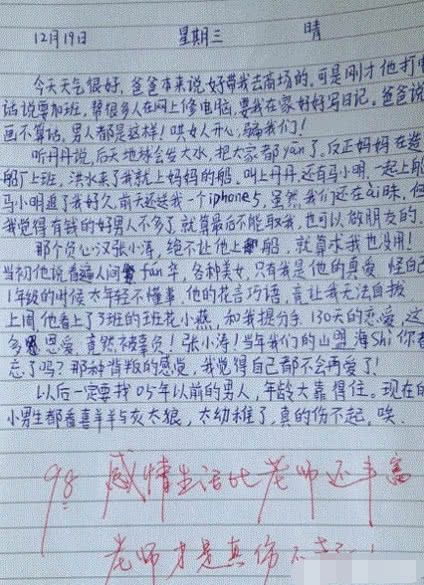 12月19日 星期三 晴
今天天气很好，爸爸本来说好带我去商场的，可是刚才他打电
话说要加班，帮很多人在网上修电脑，要我在家好好写日记。爸爸说
画不算话，男人都是这样！哄女人开心，骗我们！
听丹丹说，后天地球会发大水，把大家都yān了。反正妈妈在造
船厂上班，洪水来了我就上妈妈的船。叫上丹丹还有马小明，一起上船
马小明追了我好久，前天还送我一个iphone5，虽然我们还在ài昧，但
我觉得有钱的好男人不多了，就算最后不能取我，也可以做朋友的。
那个负心汉张小涛，绝不让他上船，就算求我也没用！
当初他说看遍人间fán华，各种美女，只有我是他的真爱，怪自己
1年级的时候太年轻不懂事，他的花言巧语，竟让我无法自拔
上周，他看上了3班的班花小燕，和我提分手，130天的恋爱，这
多恩爱，竟然被辜负！张小涛！当年我们的山盟海Shì你都
忘了吗？那种背叛的感觉，我觉得自己都不会再爱了！
以后一定要找05年以前的男人，年龄大靠得住。现在的
小男生都看喜羊羊与灰太狼，太幼稚了，真的伤不起，唉。
98 感情生活比老师还丰富
老师才是真伤不起